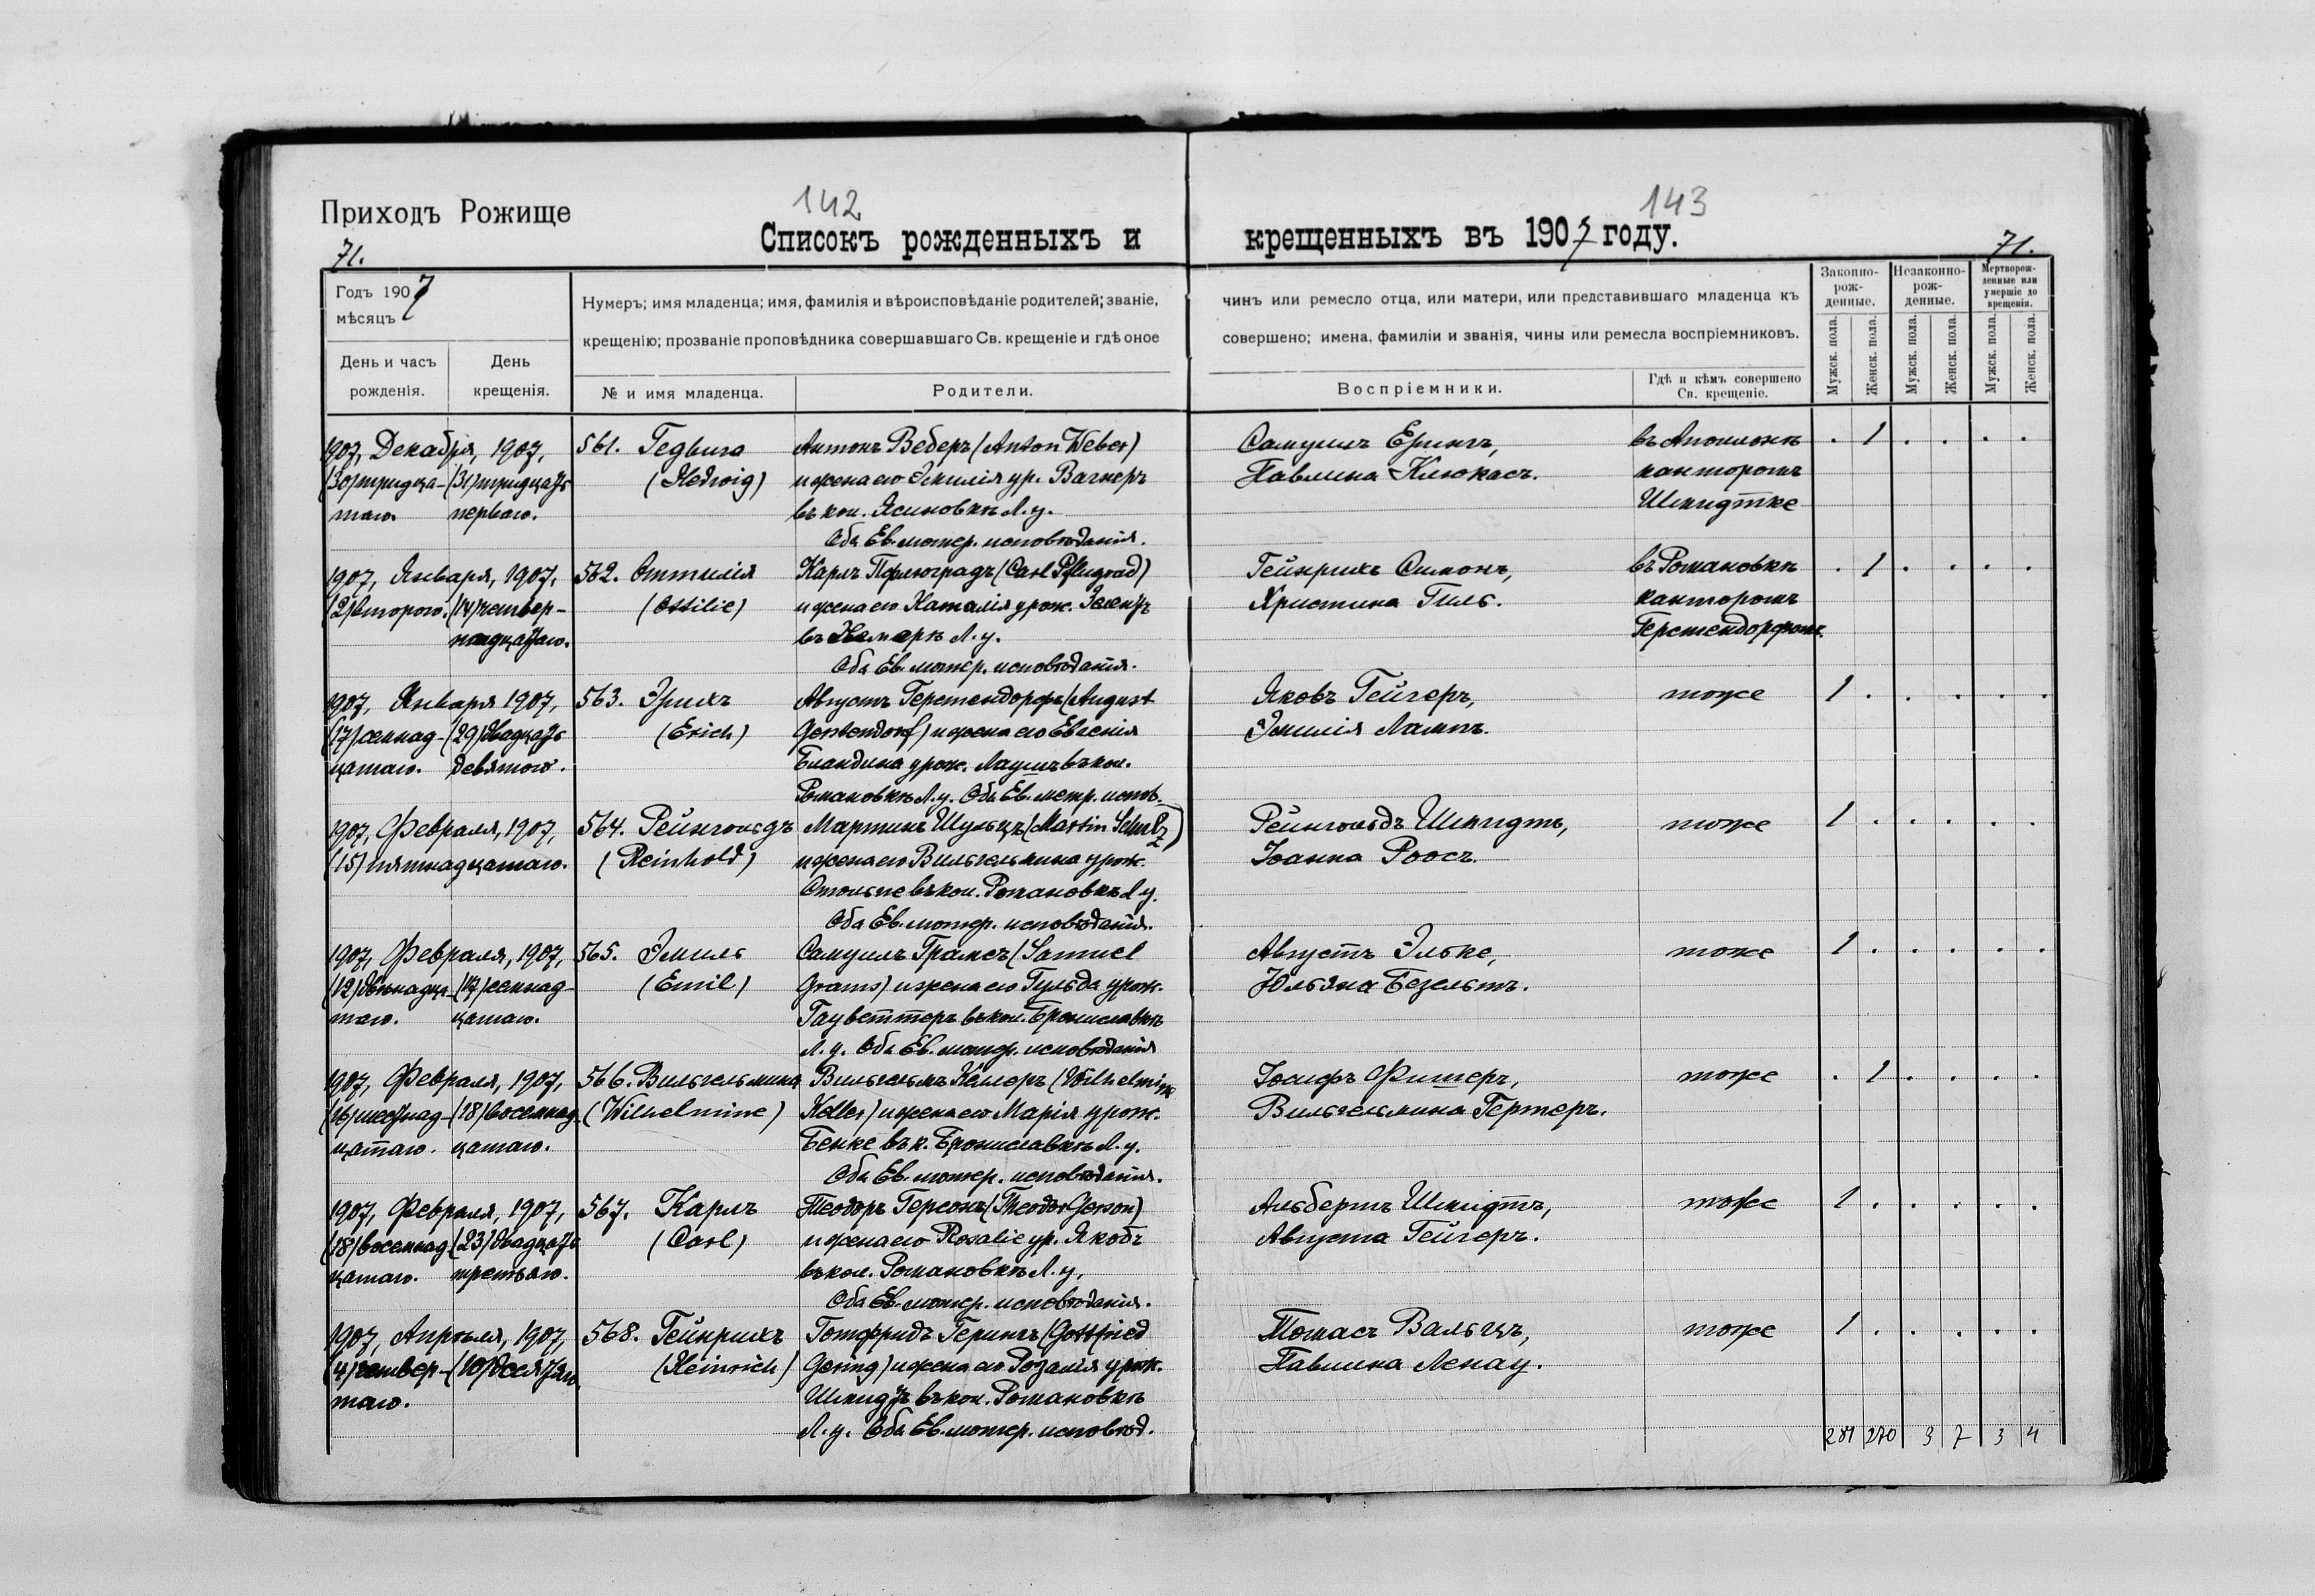 142
143
Приходъ Рожище
Списокъ рожденныхъ и крещенныхъ въ 1907 году.
71.
71.
Годъ 1907
мѣсяцъ
День и часъ рожденія.
День крещенія.
Нумеръ; имя младенца; имя, фамилія и вѣроисповѣданіе родителей; званіе, чинъ или ремесло отца, или матери, или представившаго младенца къ
крещенію; прозваніе проповѣдника совершавшаго Св. крещеніе и гдѣ оное совершено; имена, фамиліи и званія, чины или ремесла воспріемниковъ.
№ и имя младенца.
Родители.
Воспріемники.
Гдѣ и кѣмъ совершено Св. крещеніе.
Законно-рож-денные.
Незаконно-рож-денные.
Мертворож-денные или умершіе до крещенія.
Мужск. пола.
Женск. пола.
Мужск. пола.
Женск. пола.
Мужск. пола.
Женск. пола.
1907, Декабря, 1907,
(30) тридца- (31) тридцать
таго. перваго.
561. Гедвига
(Hedwig)
Антонъ Веберъ (Anton Weber)
и жена его Эмилія ур. Вагнеръ
въ кол. Ясиновкѣ Л. у.
Оба Ев. лютер. исповѣданія.
Самуилъ Ерингъ,
Павлина Клюкасъ.
въ
канторомъ
Шмидтке
. 1 . . . .
1907, Января, 1907,
(2) второго. (14) четвер-
надцатаго.
562. Оттилія
(Ottilie)
Карлъ Пфлюградъ (Carl Pflugrad)
и жена его Наталія урож.
въ Л. у.
Оба Ев. лютер. исповѣданія.
Гейнрихъ Симонъ,
Христина Гиль.
въ Романовкѣ
канторомъ
Герстендорфомъ
. 1 . . . .
1907, Января 1907,
(17) семнад- (29) двадцать
цатаго. девятого.
563. Эрихъ
(Erich)
Августъ Герстендорфъ (August
Gerstendorf) и жена его Евгенія
Бландина урож. въ кол.
Романовкѣ Л. у. Оба Ев. лютр. испов.
Яковъ Гейгеръ,
Эмилія Лампъ.
тоже
1 . . . . .
1907, Февраля, 1907,
(15) пятнадцатаго.
564. Рейнгольдъ
(Reinhold)
Мартинъ Шульцъ (Martin Schulz)
и жена его Вильгельмина урож.
въ кол. Романовкѣ Л у.
Оба Ев. лютер. исповѣданія.
Рейнгольдъ Шмидтъ,
Іоанна Роосъ.
тоже
1 . . . . .
1907, Февраля, 1907,
(12) двѣнадца- (17) семнад-
таго. цатаго.
565. Эмиль
(Emil)
Самуилъ Грамсъ (Samuel
Grams) и жена его Гульда урож.
въ кол. Брониславкѣ
Л. у. Оба Ев. лютер. исповѣданія
Августъ Эльке,
Юльяна Безельтъ.
тоже
1 . . . . .
1907, Февраля, 1907,
(16) шестнад- (18) восемнад-
цатаго. цатаго.
566. Вильгельмина
(Wilhelmine)
Вильгельмъ Келлеръ (Wilhelmine
Keller) и жена его Марія урож.
Бенке въ к. Брониславкѣ Л. у.
Оба Ев. лютер. исповѣданія.
Іосифъ Фишеръ,
Вильгельмина Гертеръ.
тоже
. 1 . . . .
1907, Февраля, 1907,
(18) восемнад- (23) двадцать
цатаго. третьяго.
567. Карлъ
(Carl)
Теодоръ Герсонъ (Theodor Gerson)
и жена его Rosalie ур. Якобъ
въ кол. Романовкѣ Л. у.
Оба Ев. лютер. исповѣданія.
Альбертъ Шмидтъ,
Августа Гейгеръ.
тоже
1 . . . . .
1907, Апрѣля, 1907,
(4) четвер- (10) десятаго
таго.
568. Гейнрихъ
(Heinrich)
Готфридъ Герингъ (Gottfried
Gering) и жена его Розалія урож.
Шмидтъ въ кол. Романовкѣ
Л. у. Оба Ев. лютер. исповѣд.
Томасъ Вальцъ,
Павлина Ленау.
тоже
1 . . . . .
281 270 3 7 3 4